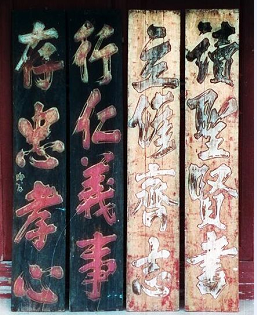 讀聖賢書
立修齊志
行仁義事
存忠孝心